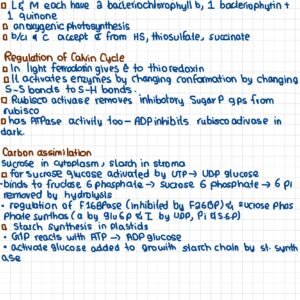 ▢ L & M each have 2 bacteriochlorophyll b, 1 bacteriophytin +
1 quinone
▢ anoxygenic photosynthesis
▢ b/c₁ & c accept ē from HS, thiosulfate, succinate
Regulation of Calvin Cycle
▢ In light ferrodoxin gives ē to thioredoxin
▢ It activates enzymes by changing conformation by changing
S-S bonds to S-H bonds.
▢ Rubisco activase removes inhibitory Sugar P gps from
rubisco
▢ has ATPase activity too - ADP inhibits rubisco activase in
dark.
Carbon assimilation
sucrose in cytoplasm, starch in stroma
▢ for sucrose glucose activated by UTP → UDP glucose
· binds to fructose 6 phosphate → sucrose 6 phosphate → 6 Pi
removed by hydrolysis
· regulation of F16BPase (inhibited by F26BP) & sucrose Phos
Phate Synthas (a by Glu6P & I by UDP, Pi & S6P)
▢ Starch Synthesis in Plastids
· G1P reacts with ATP → ADP glucose
· activate glucose added to growth starch chain by st. synth
ase